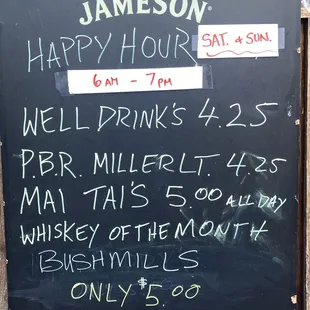 JAMESON®
HAPPY HOUR SAT. & SUN.
6AM - 7PM
WELL DRINK'S 4.25
P.B.R. MILLER LT. 4.25
MAI TAI'S 5.00 ALL DAY
WHISKEY OF THE MONTH
BUSHMILLS
ONLY $5.00